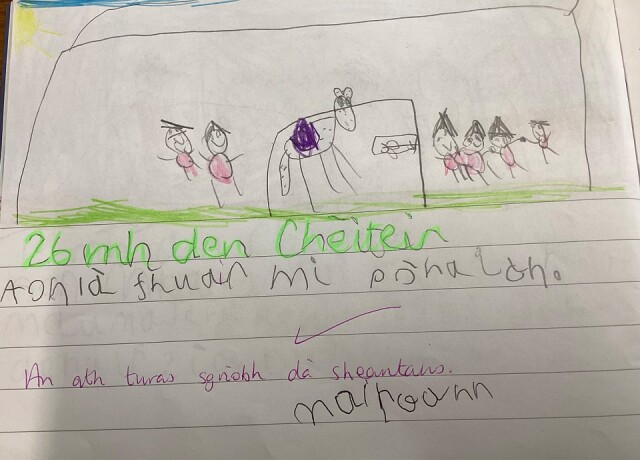 26 mh den Chèitein
Aon là fhuair mi pònaidh.
An ath turas sgrìobh dà sheantans.